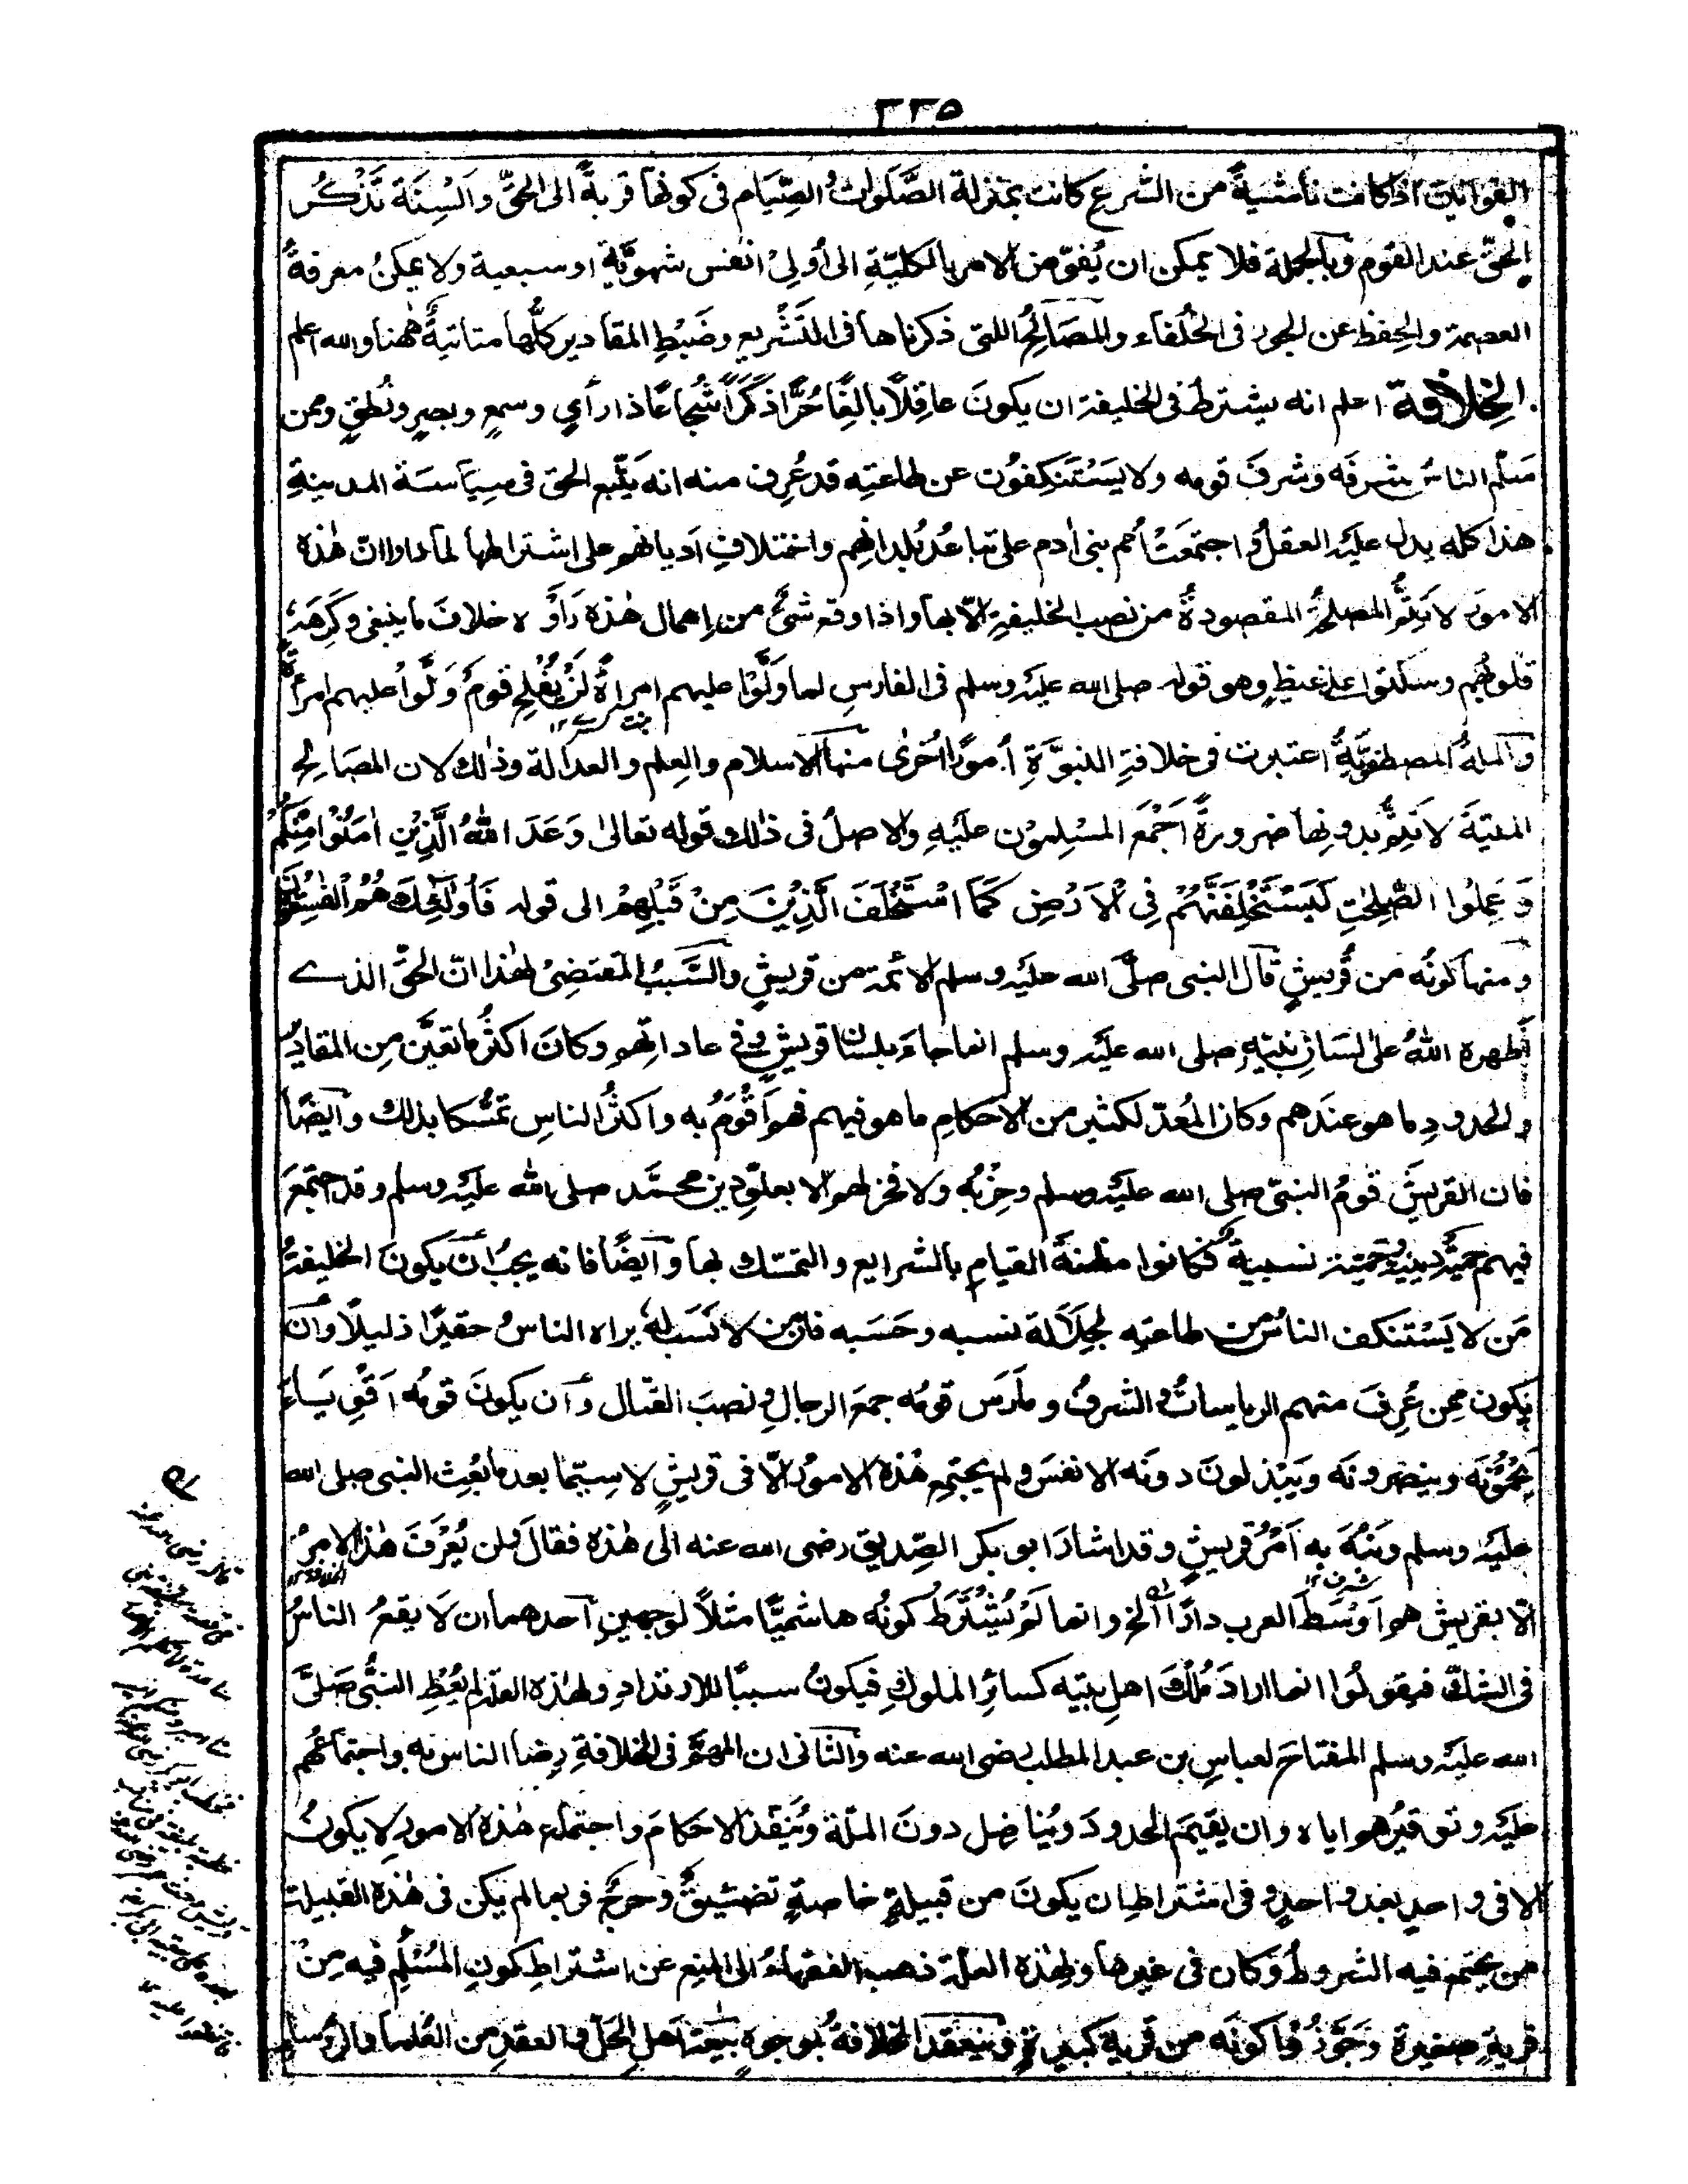 ٣٣٥
القوانين اذا كانت ناشئيةً من الشرع كانت بمنزلة الصَّلَوات والصِّيَام فى كونها قربةً الى الحقِّ وَالسِنَة تَذْكُر
الحقّ عند القوم وبالجملة فلا يمكن ان يُفوّض الامر بالكليّةِ الى أُولِىْ انفس شهويَّةٍ او سبعية ولا يمكنُ معرفةُ
العصمة والحِفظ عن الجور فى الخُلَفاء والمصَالِحُ اللتى ذكرناها فى التَشرِيع وضَبْطِ المقادير كلُّها متاتيةٌ هٰهنا والله اعلم
الخِلَافة اعلم انه يشترطُ فى الخليفة ان يكونَ عاقِلًا بالِغًا حُرًّا ذَكَرًا شُجاعًا ذا رأىٍ وسمعٍ وبصرٍ ونُطقٍ وممن
سَلَّم الناسُ شرفَه وشرفَ قومه ولا يَسْتَنَكِفُون عن طاعتِه قد عُرِف منه انه يَتَّبع الحق فى سِيَاسَة المدينةِ
هذا كله يدل عليه العقلُ واجتمَعَتْ اُمم بنى اٰدم على تباعُد بُلدانهِم واختلافِ اَديانهم على اشتراطها لما راوا انّ هٰذه
الامور لا تَتِمُّ المصلحةُ المقصودةُ من نصب الخليفةِ الّا بها واذا وقع شئٌ من اِهمال هٰذه رَاَوْه خلافَ ما ينبغى وكَرِهَه
قلوبُهم وسكتوا على غيظٍ وهو قوله صلى الله عليه وسلم فى الفارسِ لما وَلَّوْا عليهم امراةً لَنْ يُفْلِحَ قومٌ وَلَّوْا عليهم امرأةً
والملةُ المصطفويَّةُ اعتبرت فى خلافةِ النبوَّةِ أمورًا اُخَرٰى منها الاسلام والعِلم والعدالة وذٰلك لان المصَالِحَ
المليّةَ لا تَتِمُّ بدونها ضرورةً اَجْمَعَ المسْلِمون عليهِ والاصلُ فى ذٰلك قوله تعالىٰ وَعَدَ اللهُ الَّذِيْنَ اٰمَنُوْا مِنْكُمْ
وَعَمِلُوا الصّٰلِحٰتِ لَيَسْتَخْلِفَنَّهُمْ فِى الْاَرْضِ كَمَا اسْتَخْلَفَ الَّذِيْنَ مِنْ قَبْلِهِمْ الى قوله فَاُولٰٓئِكَ هُمُ الْفٰسِقُوْنَ
ومنها كونُه من قُريشٍ قال النبى صلَّى الله عليه وسلم الائمة من قريشٍ والسَّببُ المقتضِىْ لهٰذا انّ الحقَّ الذى
أظهره اللهُ على لسَانِ نبيّهٖ صلى الله عليه وسلم انما جاءَ بلسانِ قريشٍ وفى عاداتِهم وكانَ اكثرُ ما تعيَّن مِن المقاديرِ
والحدودِ ما هو عندَهم وكان المُعِدّ لكثير من الاحكام ما هو فيهم فهم اَقْوَمُ به واكثرُ الناسِ تمسُّكا بذٰلك وايضًا
فان القريشَ قومُ النبىّ صلى الله عليه وسلم وحِزبُه ولا فخر لهم الا بعلوِّ دين محمَّد صلى الله عليه وسلم وقد اجتمعَ
فيهم حميَّةٌ دينيةٌ وحميّةٌ نسبيةٌ فكانوا مظنةَ القيامِ بالشرايع والتمسّك بها وايضًا فانه يجبُ اَن يكونَ الخليفةُ
مَن لا يَسْتَنكف الناسُ من طاعتِه لجَلَالة نسبه وحَسَبه فان من لا نَسَب لهٗ يراه الناسُ حقيرًا ذليلًا واَن
يكون ممن عُرِفَ منهم الرياساتُ والشرفُ ومارَس قومُه جمعَ الرجالِ ونصبَ القتال واَن يكونَ قومُه اَقْوِيَاءَ
يَحْمُوْنَه وينصرونَه ويَبْذلونَ دونَه الانفسَ ولم يجتمع هٰذه الامورُ الّا فى قريشٍ لا سِيّمَا بعد ما بُعِثَ النبى صلى الله
عليه وسلم ونبُهَ به اَمْرُ قريشٍ وقد اشارَ ابو بكر الصِّديق رضى الله عنه الى هٰذه فقالَ ولن يُعْرَفَ هٰذا الامرُ
الّا بقريش هم اَوْسَطُ العرب دارًا الخ وانما لَمْ يُشْتَرَطْ كونُه هاشميًّا مثلًا لوجهينِ اَحدهما ان لَا يقعَ الناسُ
فى الشكّ فيقولُوا انما اراد مُلْكَ اهلِ بيتِه كسائرِ الملوكِ فيكونُ سببًا للارتدادِ ولهٰذه العلة لم يُعْطِ النبىُّ صَلَّى
الله عليه وسلم المفتاحَ لعباس بن عبد المطلب رضى الله عنه والثانى ان المهمَّ فى الخلافةِ رِضا الناس به واجتماعُهم
عليه وتوقيرُهم اياه وان يقيمَ الحدودَ ويُناضِل دونَ الملّة ويُنَفِّذَ الاحكامَ واجتماع هٰذه الامورِ لا يكونُ
الا فى واحدٍ بعد واحدٍ وفى اشتراط ان يكونَ من قبيلةٍ خاصةٍ تضييقٌ وحرجٌ فربما لم يكن فى هٰذه القبيلة
من يجتمع فيه الشروطُ وكان فى غيرها ولهٰذه العلّة ذهب الفقهاءُ الى المنع عن اشتراطِ كونِ المُسْلَمِ فيه مِنْ
قريةٍ صغيرةٍ وجَوَّزُوْا كونَه من قريةٍ كبيرةٍ وينعقد الخلافةُ بوجوهٍ بيعةُ اَهلِ الحَلّ والعقدِ من العُلماء والرؤساءِ